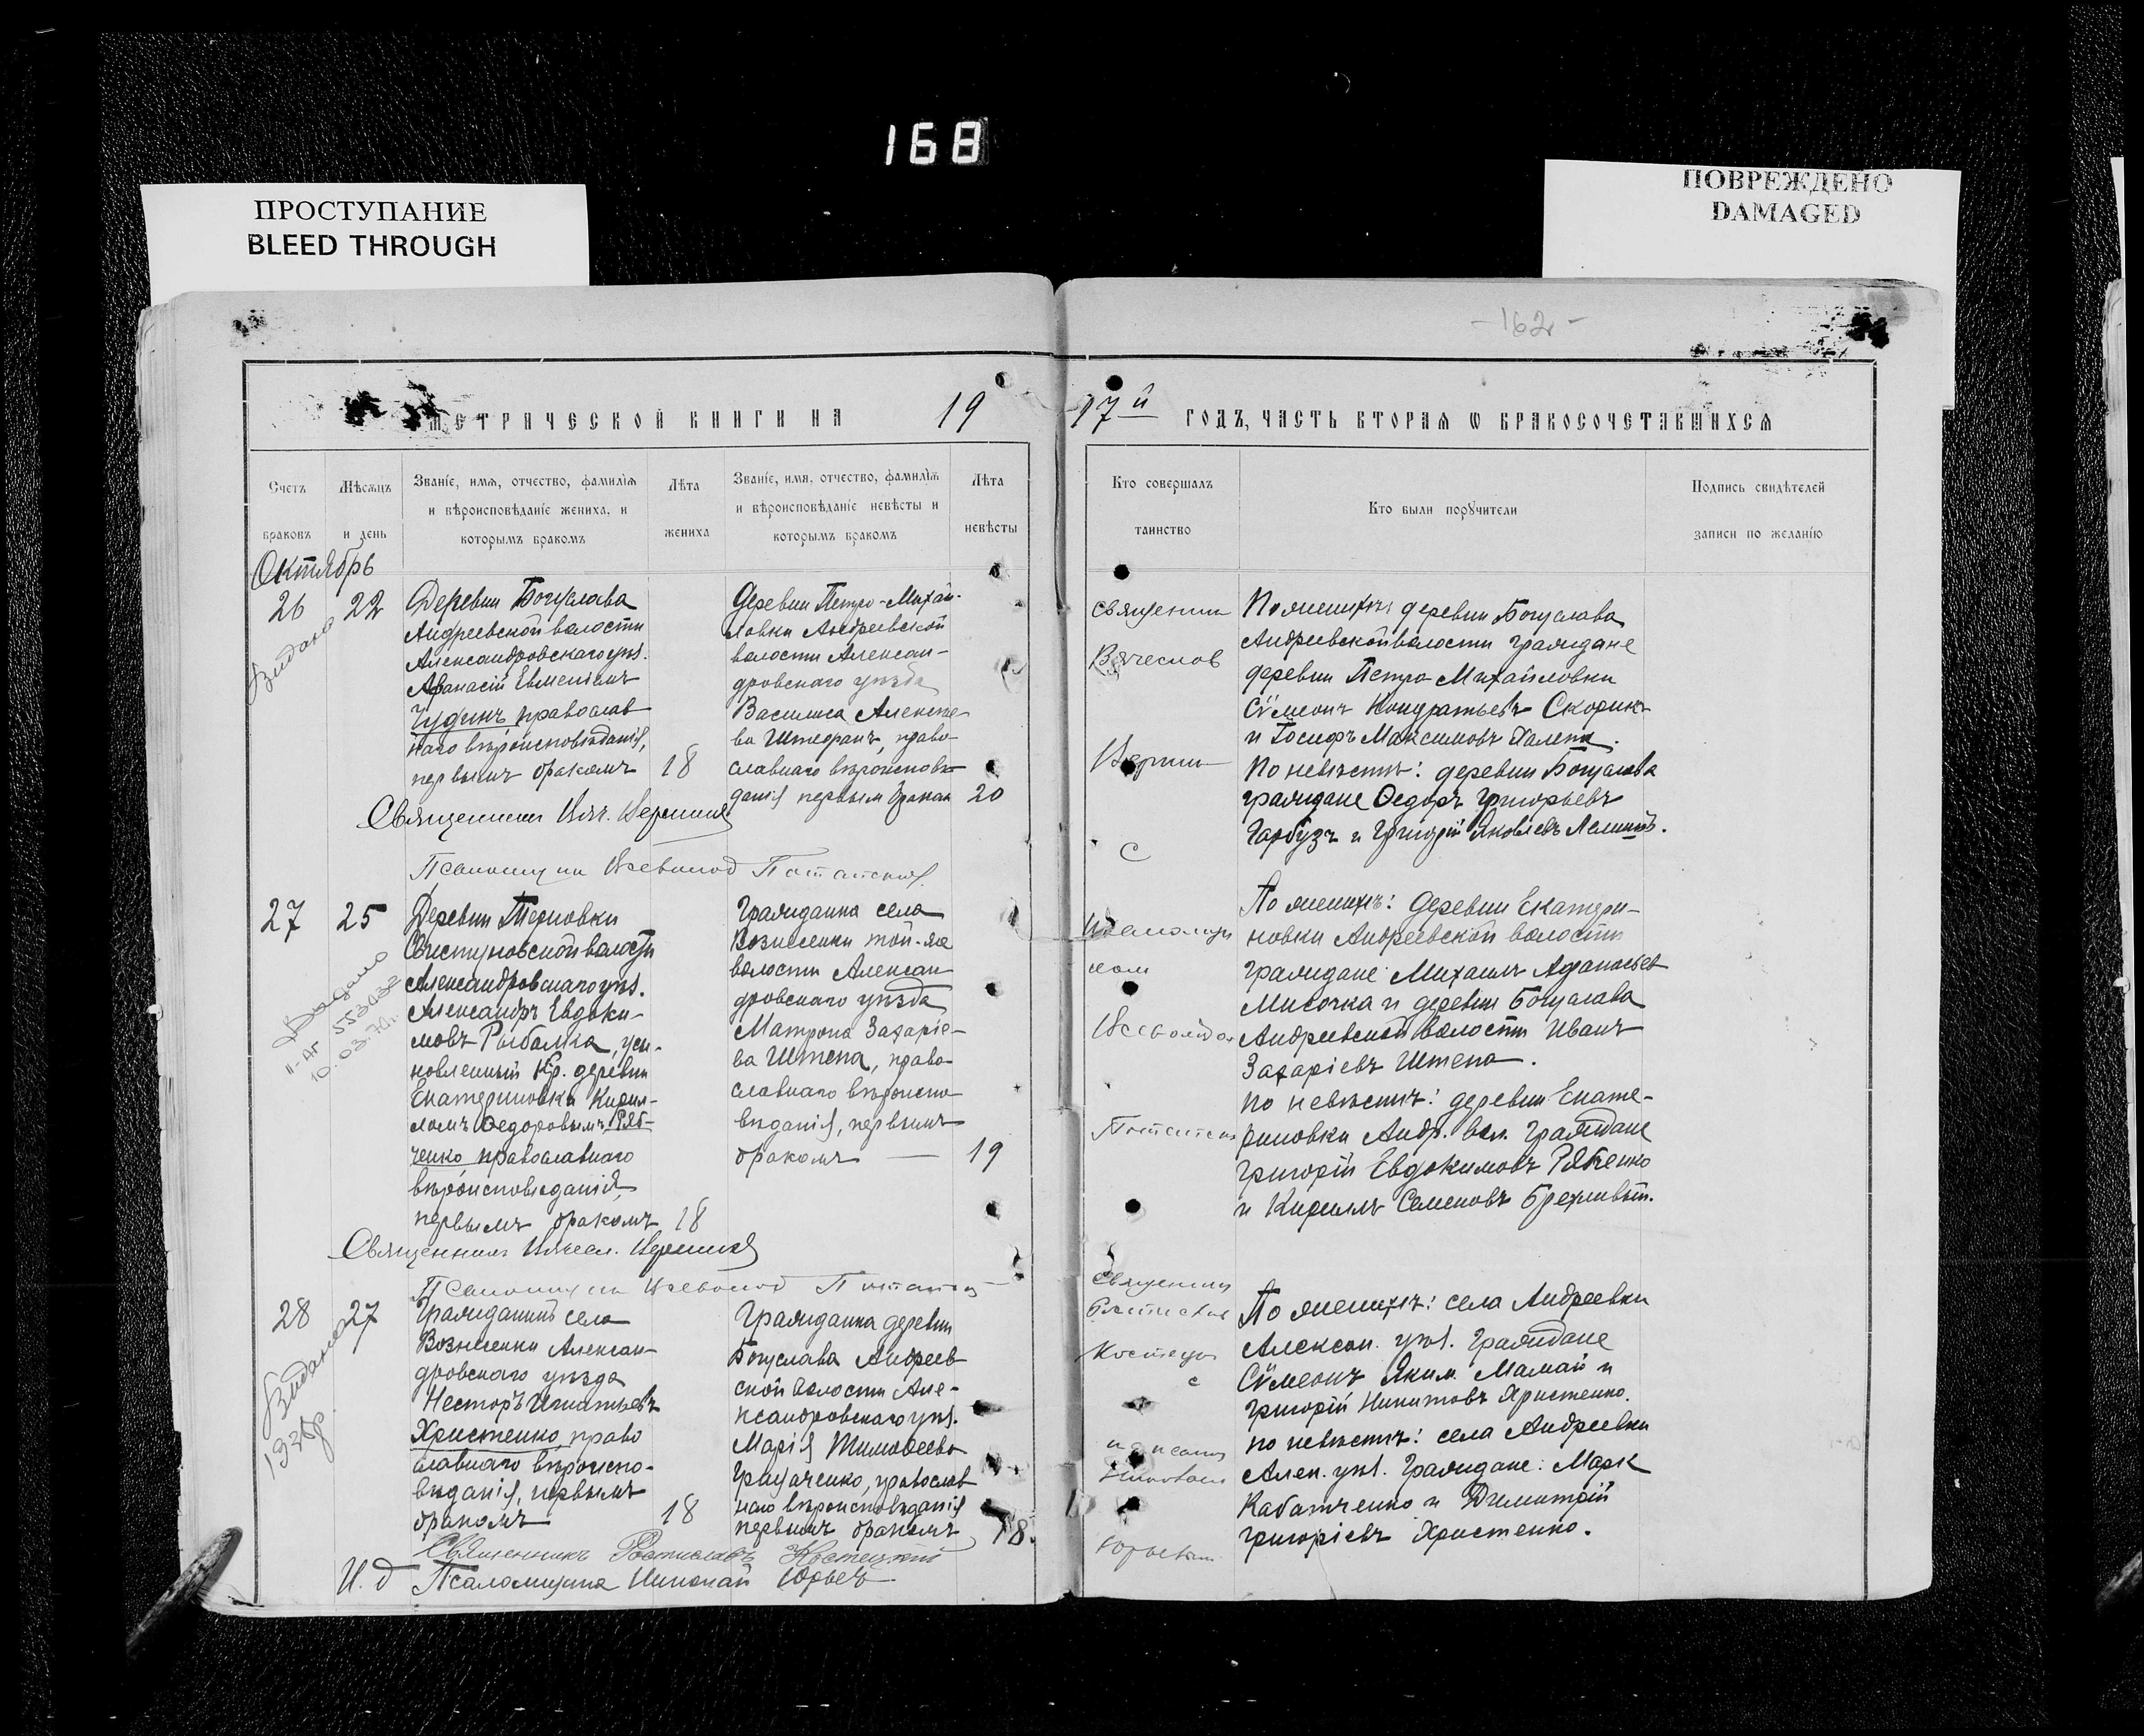 168
ПРОСТУПАНИЕ
BLEED THROUGH
ПОВРЕЖДЕНО
DAMAGED
-162-
МЕТРИЧЕСКОЙ КНИГИ НА 19
17й ГОДЪ, ЧАСТЬ ВТОРАЯ Ѡ БРАКОСОЧЕТАВШИХСЯ
Счетъ браковъ
Мѣсяцъ и день
Званіе, имя, отчество, фамилія
и вѣроисповѣданіе жениха, и
которымъ бракомъ
Лѣта жениха
Званіе, имя, отчество, фамилія
и вѣроисповѣданіе невѣсты и
которымъ бракомъ
Лѣта невѣсты
Кто совершалъ
таинство
Кто были поручители
Подпись свидѣтелей
записи по желанію
Октябрь
26
22
Видано
Деревни Богуслава
Андреевской волости
Александровскаго уѣз.
Афанасій Евменіевъ
Чудинъ, православ
наго вѣроисповѣданія,
первымъ бракомъ
18
Деревни Петро-Михай-
ловки Андреевской
волости Алексан-
дровскаго уѣзда
Василиса Алексѣе-
ва Штефанъ, право-
славнаго вѣроисповѣ-
данія первым браком
20
Священникъ Вяч. Вершина
Псаломщикъ Всеволод
Священник
Вячеслов
С
По женихѣ: деревни Богуслава
Андреевской волости граждане
деревни Петро Михайловки
Сѵмеонъ Кондратьевъ Скорикъ
и Іосифъ Максимовъ Халепа.
По невѣстѣ: деревни Богуслава
граждане Ѳедоръ Григорьевъ
Гарбузъ и Григорій Яковлевъ
27
25
Видано
10.03.70г.
Деревни Терновки
Свистуновской волости
Александровскаго уѣз.
Александръ Евдоки-
мовъ Рыбалка, усы-
новленный кр. деревни
Екатериновки Кирил-
ломъ Ѳедоровымъ Ряб-
ченко православнаго
вѣроисповѣданія,
первымъ бракомъ
18
Гражданка села
Вознесенки той-же
волости Алексан
дровскаго уѣзда
Матрона Захаріе-
ва Штепа, право-
славнаго вѣроиспо-
вѣданія, первымъ
бракомъ —
19
Священникъ Вячесл. Вершина
Псаломщикъ Всеволод
Псаломщи
ком
По женихѣ: деревни Екатери-
новки Андреевской волости
граждане Михаилъ Афанасьевъ
Мисочка и деревни Богуслава
Андреевской волости Иванъ
Захаріевъ Штепа.
По невѣстѣ: деревни Екате-
риновки Андр. вол. граждане
Григорій Евдокимовъ Рябченко
и Кириллъ Семеновъ
28
27
Видана
Гражданинъ села
Вознесенки Алексан-
дровскаго уѣзда
Несторъ Игнатьевъ
Христенко, право
славнаго вѣроиспо-
вѣданія, первымъ
бракомъ
18
Гражданка деревни
Богуслава Андреев-
ской волости Але-
ксандровскаго уѣз.
Марія Тимоѳеева
православ
наго вѣроисповѣданія
первымъ бракомъ
18.
Священникъ Ростиславъ Костецкій
И. д Псаломщика Николай Юрьев
Священник
Ростислав
Костецк
с
псалом
Николаем
Юрьевым
По женихѣ: села Андреевки
Алексан. уѣз. граждане
Сѵмеонъ Яким. Мамай и
Григорій Никитовъ Христенко.
по невѣстѣ: села Андреевки
Алек. уѣз. граждане: Марк
Кабатченко и Димитрій
Григоріевъ Христенко.